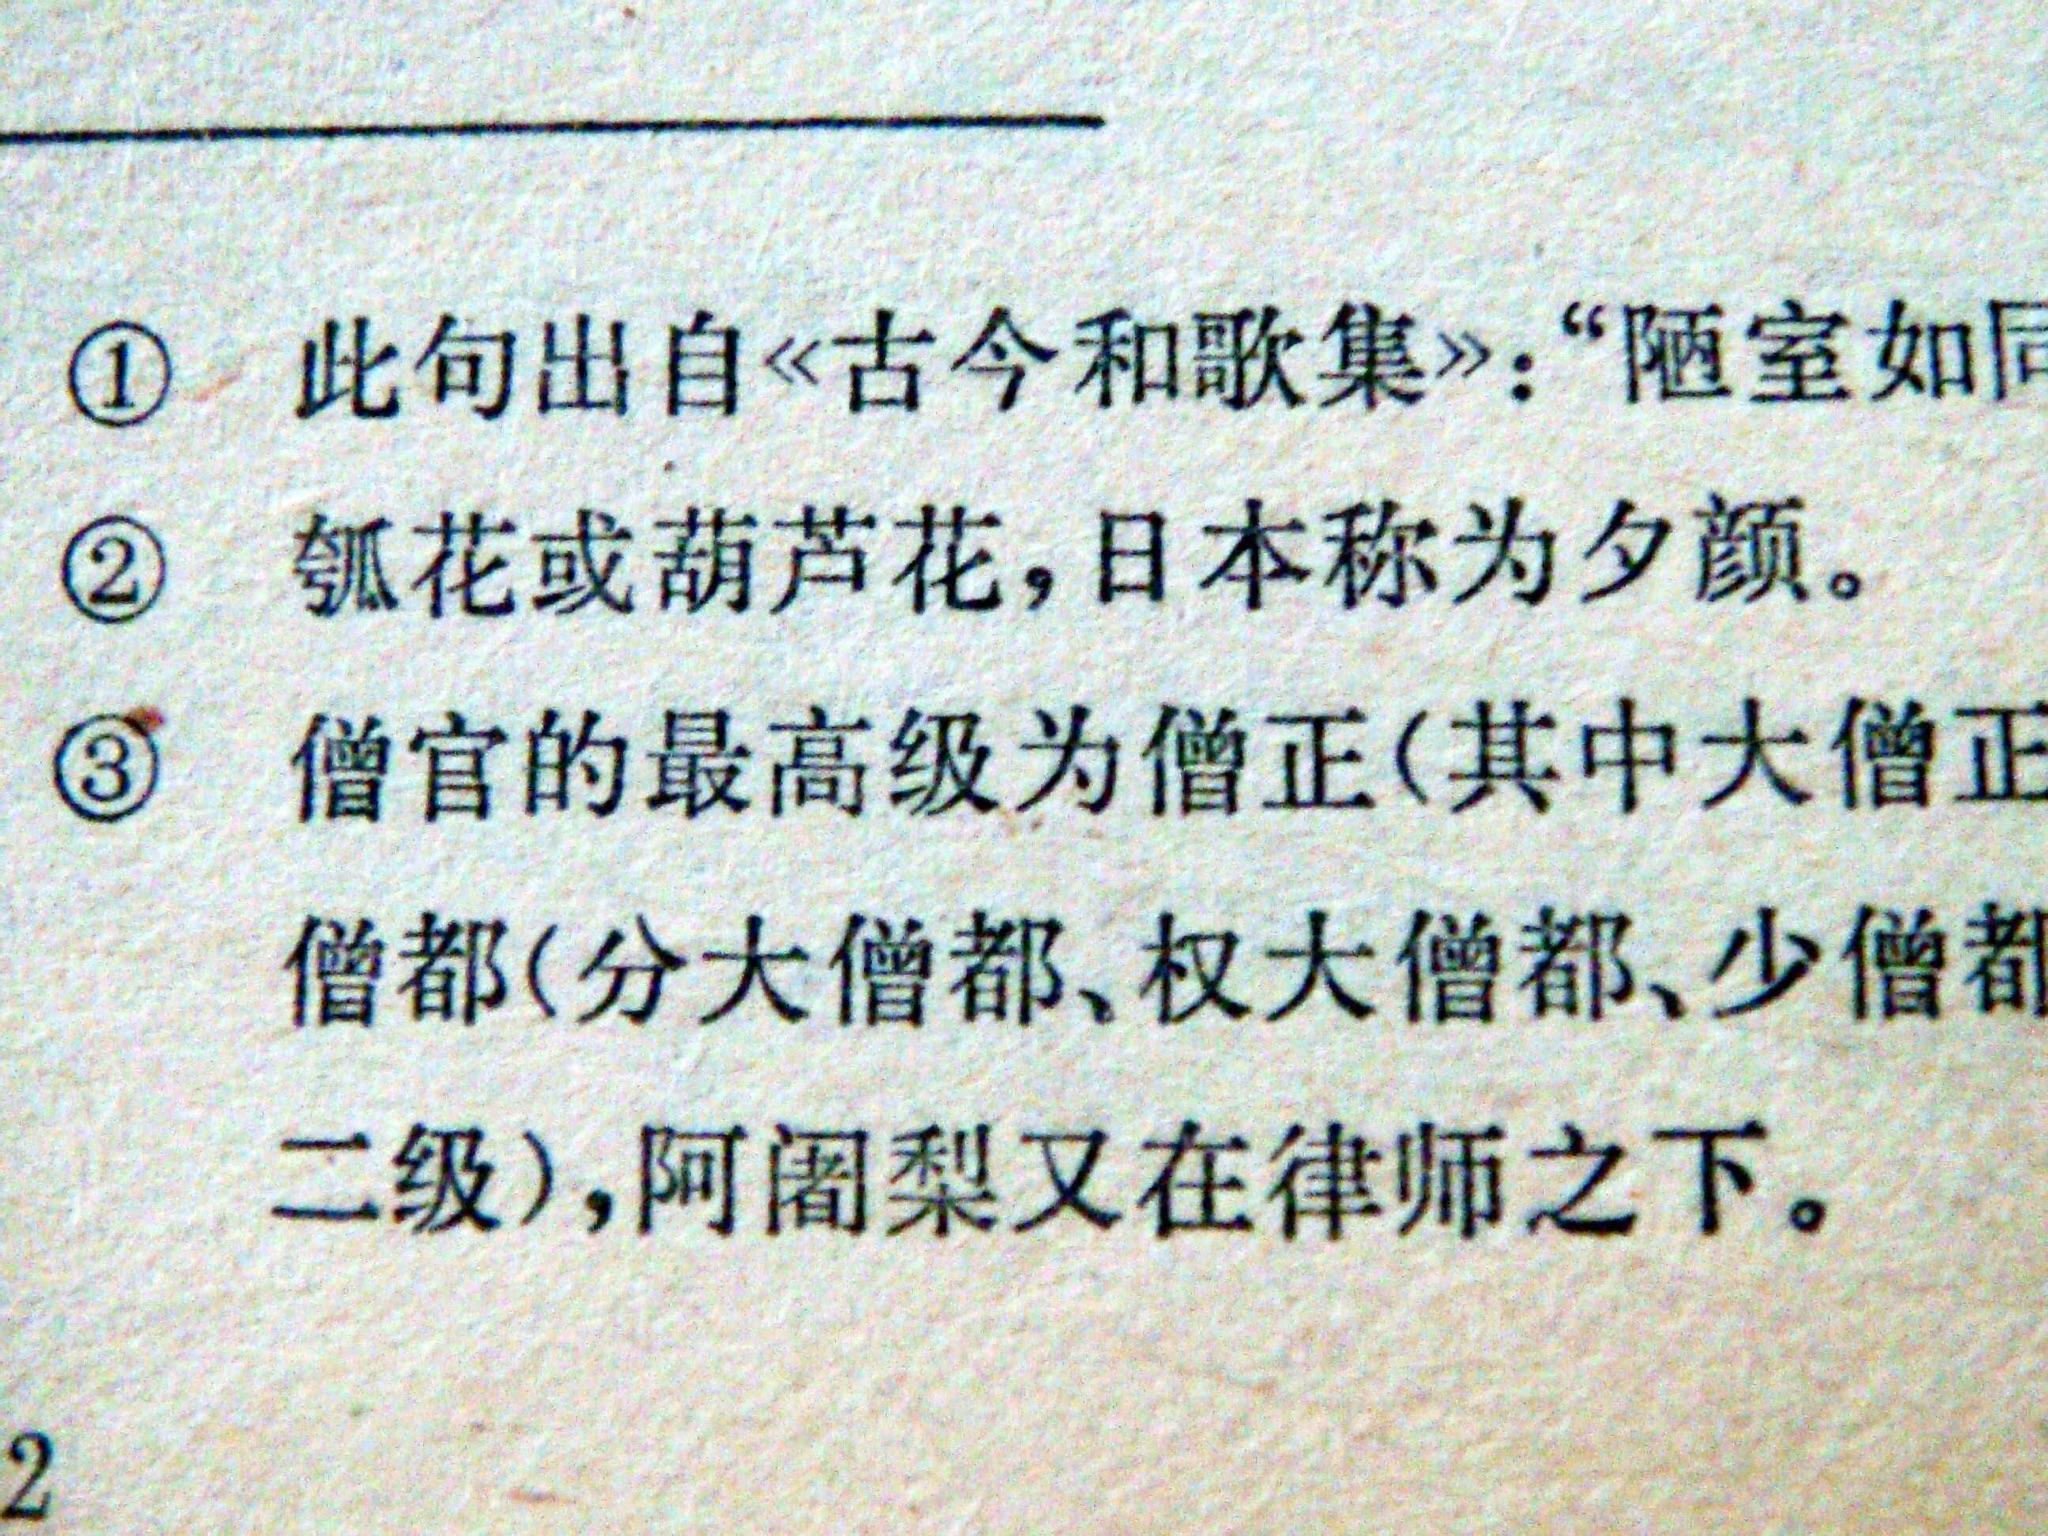 ① 此句出自《古今和歌集》:“陋室如同
② 瓠花或葫芦花,日本称为夕颜。
③ 僧官的最高级为僧正(其中大僧正
僧都(分大僧都、权大僧都、少僧都
二级),阿阇梨又在律师之下。
2